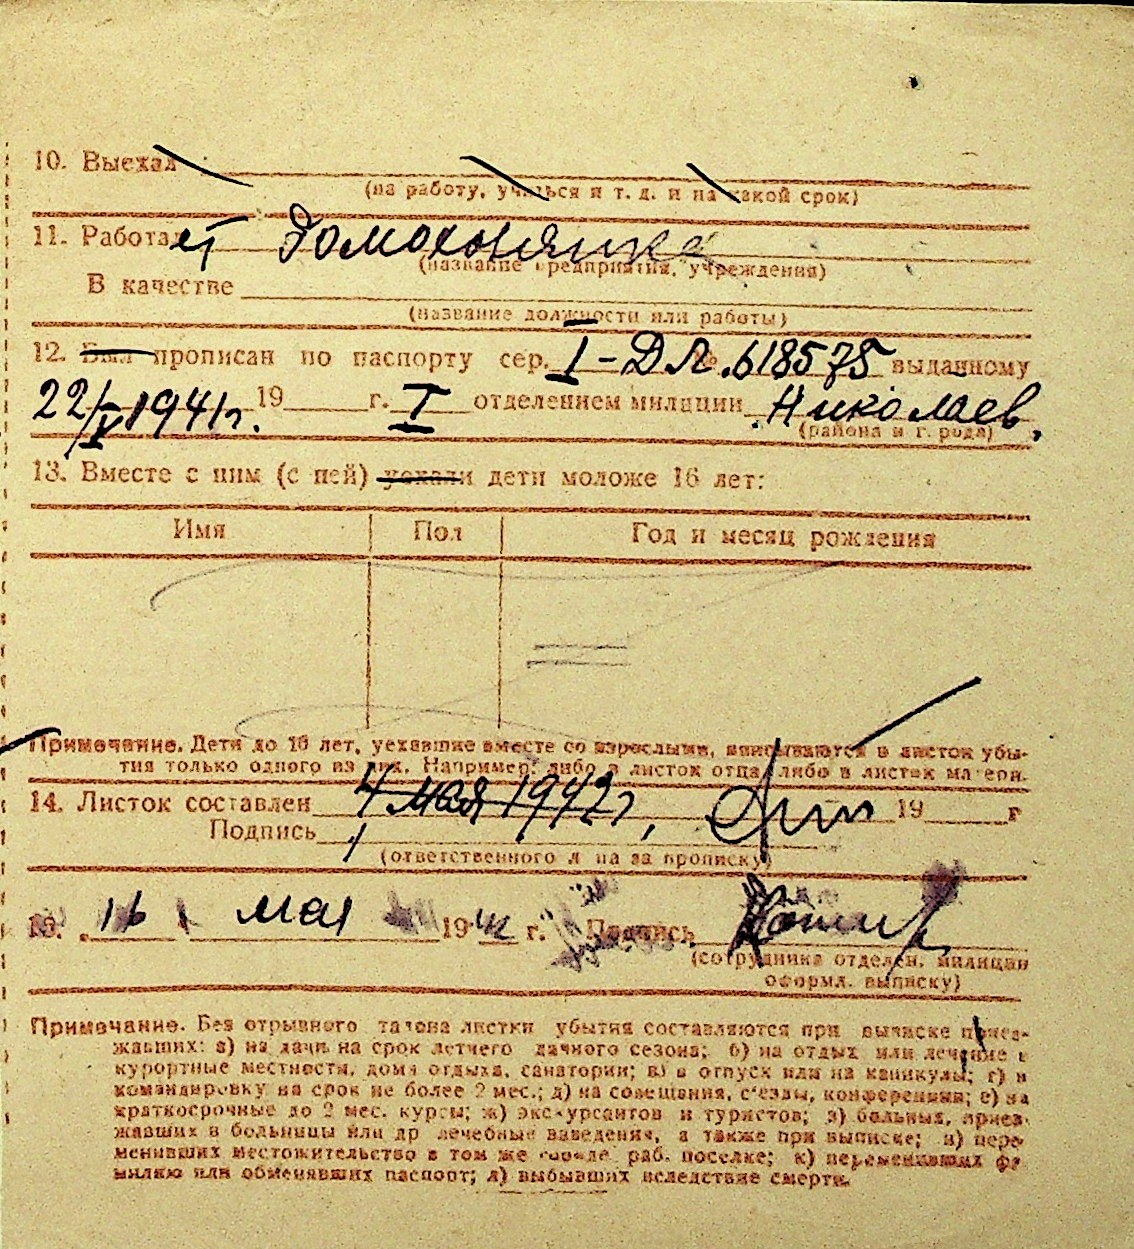 10. Выехал
(на работу, учиться и т. д. и на какой срок)
11. Работает домохозяйка
(название предприятия, учреждения)
В качестве
(название должности или работы)
12. Был прописан по паспорту сер. I-ДЛ № 618575 выданному
22/V 1941г. 19 г. I отделением милиции Николаев,
(района и города)
13. Вместе с ним (с ней) уехали дети моложе 16 лет:
Имя Пол Год и месяц рождения
Примечание. Дети до 16 лет, уехавшие вместе со взрослыми, вписываются в листок убы-
тия только одного из них. Например: либо в листок отца, либо в листок матери.
14. Листок составлен 4 мая 1942г, 19 г
Подпись
(ответственного лица за прописку)
15. 16 мая 1942 г. Подпись
(сотрудника отделен. милиции
оформл. выписку)
Примечание. Без отрывного талона листки убытия составляются при выписке приез-
жавших: а) на дачи на срок летнего дачного сезона; б) на отдых или лечение в
курортные местности, дома отдыха, санатории; в) в отпуск или на каникулы; г) в
командировку на срок не более 2 мес.; д) на совещания, с'езды, конференции; е) на
краткосрочные до 2 мес. курсы; ж) экскурсантов и туристов; з) больных, приез-
жавших в больницы или др лечебные заведения, а также при выписке; и) пере-
менивших местожительство в том же городе, раб. поселке; к) переменивших фа-
милию или обменявших паспорт; л) выбывших вследствие смерти.